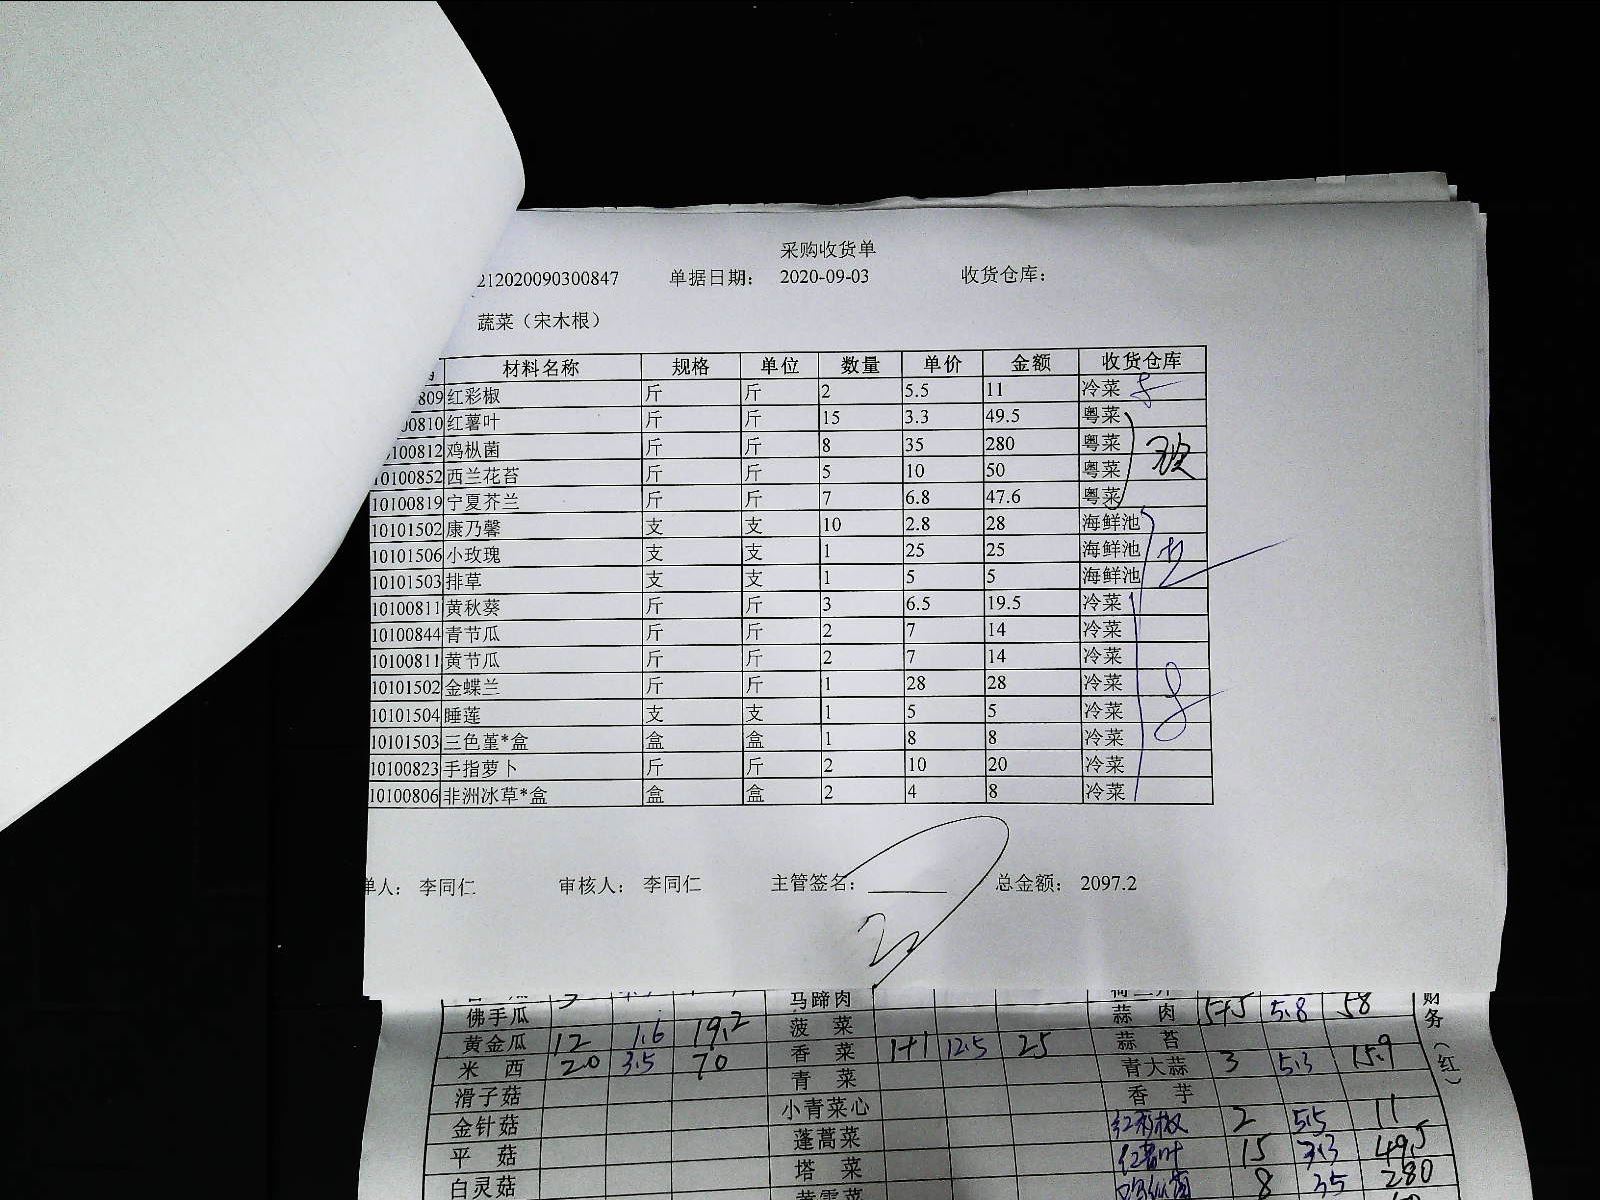 采购收货单
212020090300847 单据日期： 2020-09-03 收货仓库：
蔬菜（宋木根）
材料名称 规格 单位 数量 单价 金额 收货仓库
809 红彩椒 斤 斤 2 5.5 11 冷菜
00810 红薯叶 斤 斤 15 3.3 49.5 粤菜
0100812 鸡枞菌 斤 斤 8 35 280 粤菜
10100852 西兰花苔 斤 斤 5 10 50 粤菜
10100819 宁夏芥兰 斤 斤 7 6.8 47.6 粤菜
10101502 康乃馨 支 支 10 2.8 28 海鲜池
10101506 小玫瑰 支 支 1 25 25 海鲜池
10101503 排草 支 支 1 5 5 海鲜池
10100811 黄秋葵 斤 斤 3 6.5 19.5 冷菜
10100844 青节瓜 斤 斤 2 7 14 冷菜
10100811 黄节瓜 斤 斤 2 7 14 冷菜
10101502 金蝶兰 斤 斤 1 28 28 冷菜
10101504 睡莲 支 支 1 5 5 冷菜
10101503 三色堇*盒 盒 盒 1 8 8 冷菜
10100823 手指萝卜 斤 斤 2 10 20 冷菜
10100806 非洲冰草*盒 盒 盒 2 4 8 冷菜
单人： 李同仁 审核人： 李同仁 主管签名： 总金额： 2097.2
马蹄肉
佛手瓜 菠菜 蒜肉 5+5 5.8 58
黄金瓜 12 1.6 19.2 香菜 1+1 12.5 25 蒜苔
米西 20 3.5 70 青菜 青大蒜 3 5.3 15.9
滑子菇 小青菜心 香芋
金针菇 蓬蒿菜 红彩椒 2 5.5 11
平菇 塔菜 红薯叶 15 3.3 49.5
白灵菇 鸡枞菌 8 35 280
财务（红）